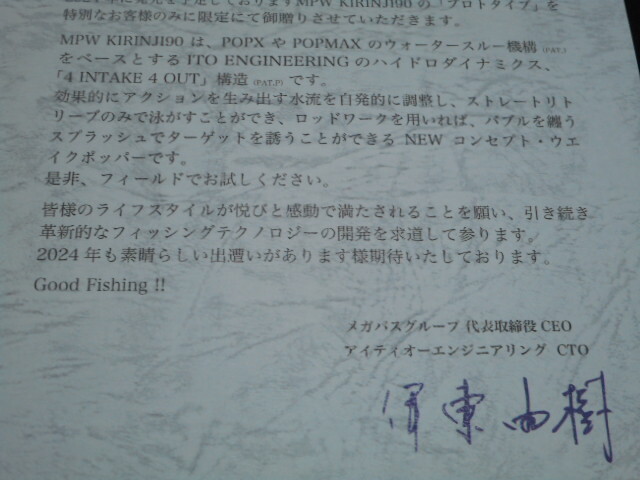 特別なお客様のみに限定にて御贈りさせていただきます。
MPW KIRINJI90 は、POPX や POPMAX のウォータースルー機構 (PAT.)
をベースとする ITO ENGINEERING のハイドロダイナミクス、
「4 INTAKE 4 OUT」構造 (PAT.P) です。
効果的にアクションを生み出す水流を自発的に調整し、ストレートリト
リーブのみで泳がすことができ、ロッドワークを用いれば、バブルを纏う
スプラッシュでターゲットを誘うことができる NEW コンセプト・ウエ
イクポッパーです。
是非、フィールドでお試しください。
皆様のライフスタイルが悦びと感動で満たされることを願い、引き続き
革新的なフィッシングテクノロジーの開発を求道して参ります。
2024 年も素晴らしい出遭いがあります様期待いたしております。
Good Fishing !!
メガバスグループ 代表取締役 CEO
アイティオーエンジニアリング CTO
伊東由樹